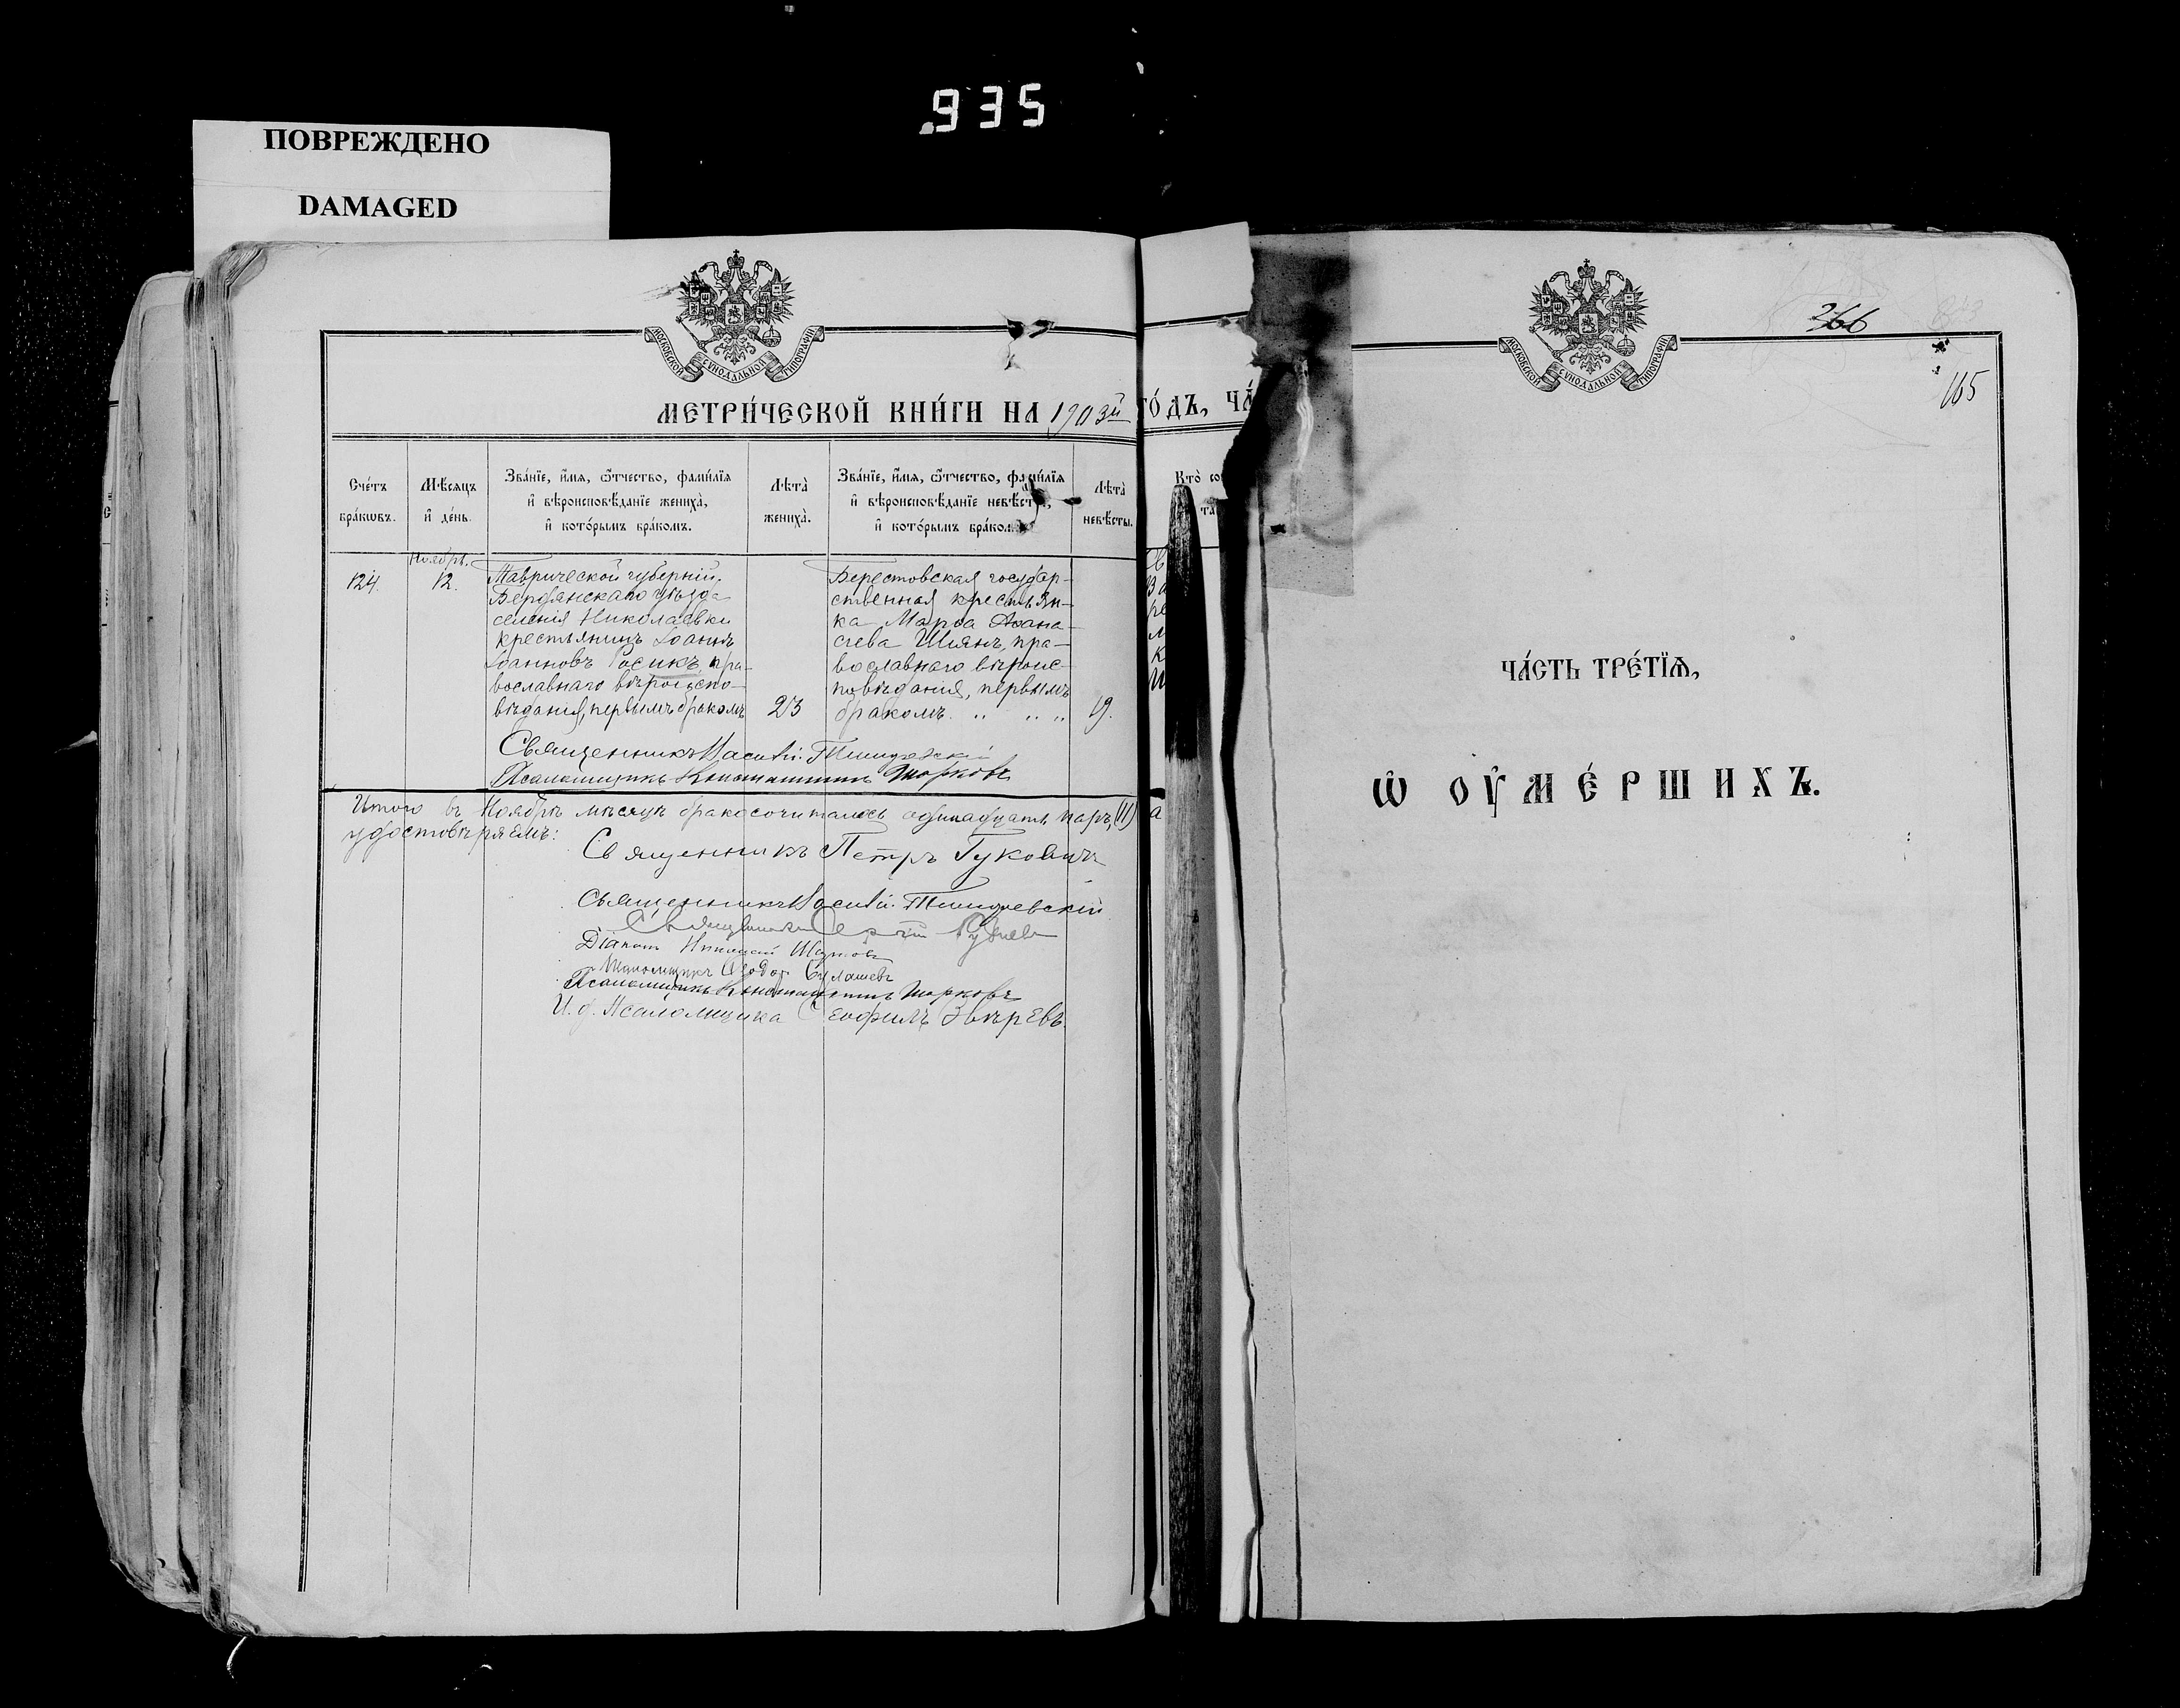 935
ПОВРЕЖДЕНО
DAMAGED
МОСКОВСКОЙ СѴНОДАЛЬНОЙ ТИПОГРАФІИ
МЕТРИ́ЧЕСКОЙ КНИ́ГИ НА 1903й
ГО́ДЪ, ЧА́
Сче́тъ бра́кѡвъ.
Мѣ́сяцъ и҆ де́нь.
Зва́нїе, и҆́мѧ, ѻ҆́тчество, фами́лїѧ и҆ вѣроисповѣ́данїе жениха̀, и҆ кото́рымъ бра́комъ.
Лѣ́та̀ жениха̀.
Зва́нїе, и҆́мѧ, ѻ҆́тчество, фами́лїѧ и҆ вѣроисповѣ́данїе невѣ́сты, и҆ кото́рымъ бра́комъ.
Лѣ́та̀ невѣ́сты.
Кто̀ со
Ноябрь.
124. 12.
Таврической губерніи,
Бердянскаго уѣзда
селенія Николаевки
крестьянинъ Іоаннъ
Іоанновъ Росикъ, пра-
вославнаго вѣроиспо-
вѣданія, первымъ бракомъ
23
Берестовская государ-
ственная крестьян-
ка Марѳа Аѳана-
сіева Шіянъ, пра-
вославнаго вѣроис-
повѣданія, первымъ
бракомъ. „ „ „
19.
Священникъ Василій
Псаломщикъ Константинъ Марковъ
Итого въ Ноябрѣ мѣсяцѣ бракосочиталось одинадцать паръ, (11) а
удостовѣряемъ:
Священникъ Петръ Гуковичъ
Священникъ Василій
Священникъ Сергій
Діаконъ Николай
Псаломщикъ Ѳеодор
Псаломщикъ Константинъ Марковъ
И. д. Псаломщика Ѳеофилъ Звѣревъ.
МОСКОВСКОЙ СѴНОДАЛЬНОЙ ТИПОГРАФІИ
366
165
ЧА́СТЬ ТРЕ́ТЇѦ,
Ѡ ОУ҆МЕ́РШИХЪ.